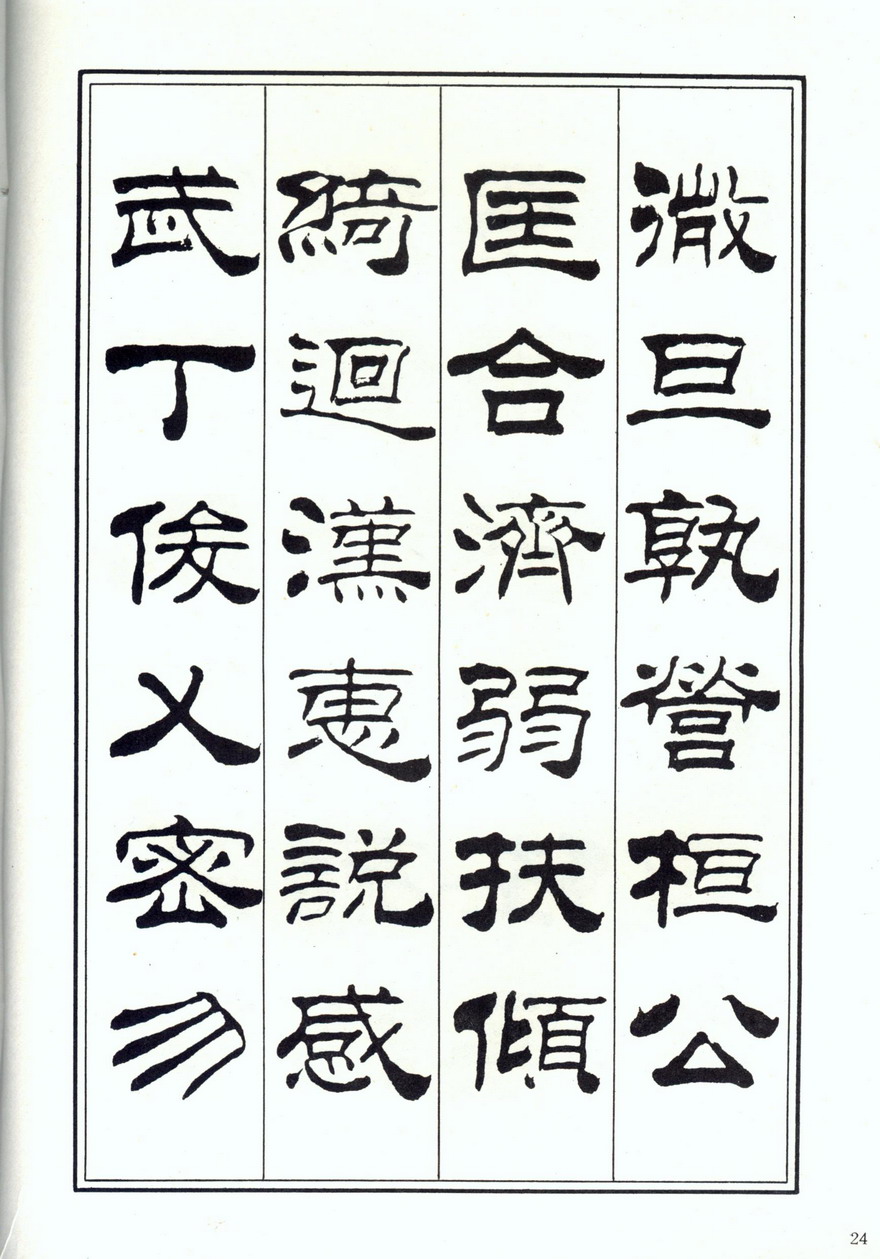 微旦孰營桓公
匡合濟弱扶傾
綺迴漢惠說感
武丁俊乂密勿
24